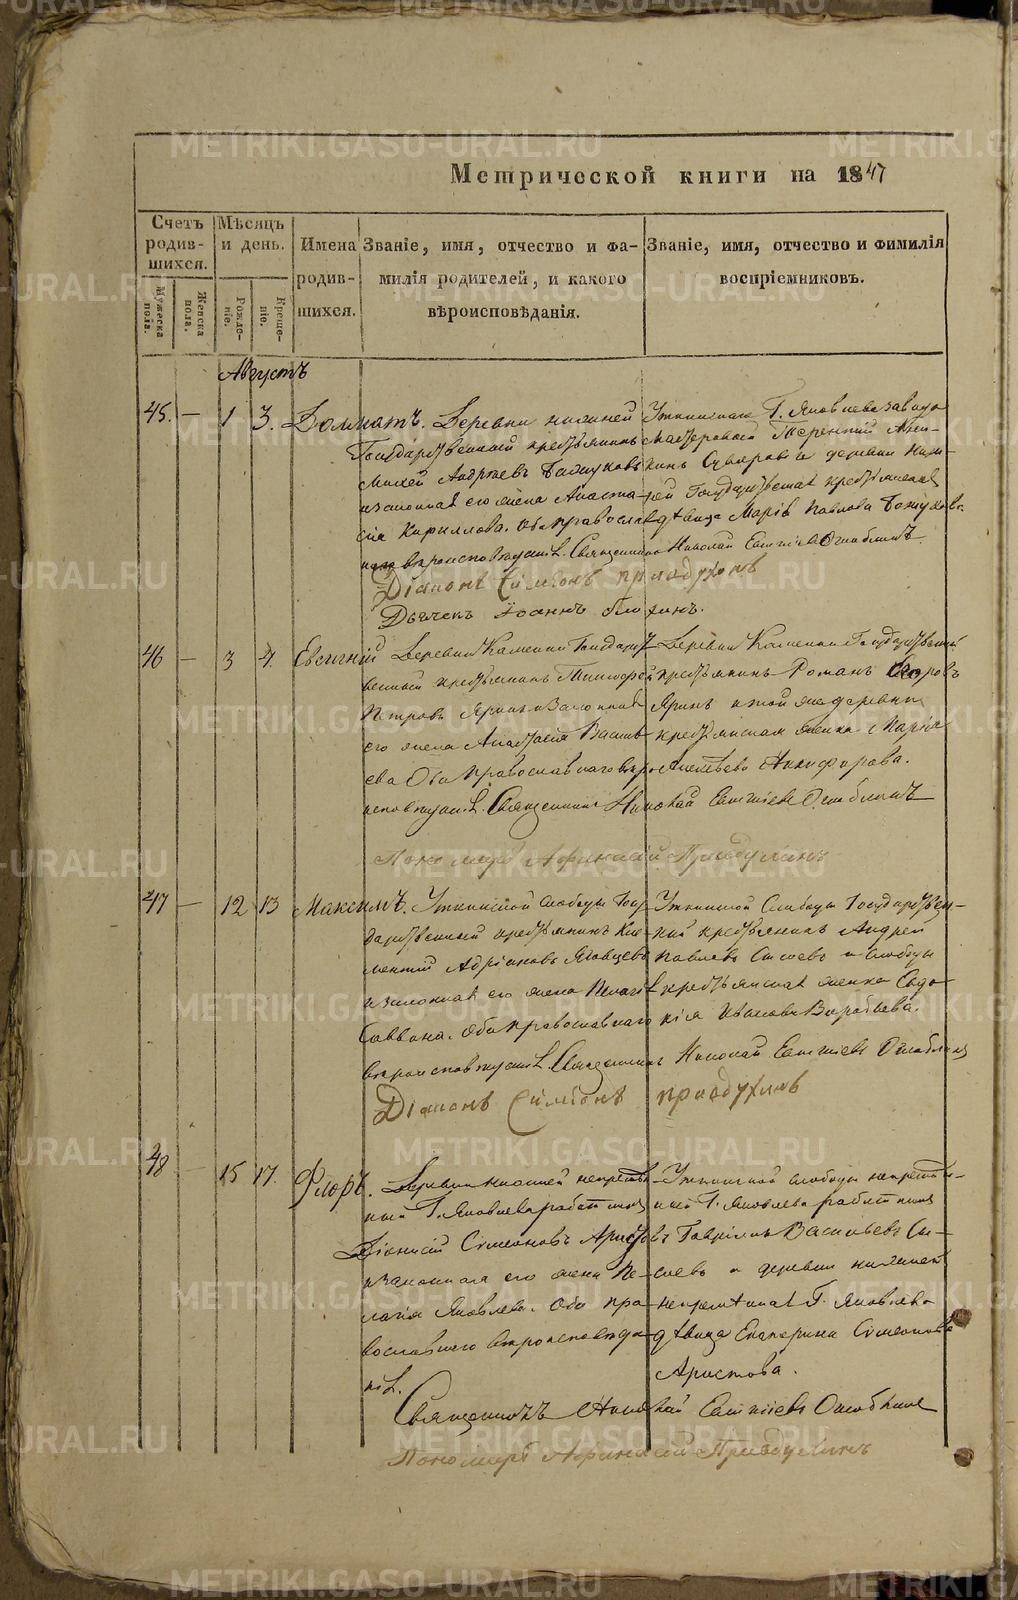 Метрической книги на 1847
Счетъ родив-шихся.
Мѣсяцъ и день.
Имена родив-шихся.
Званіе, имя, отчество и фа-милія родителей, и какого вѣроисповѣданія.
Званіе, имя, отчество и фимилія воспріемниковъ.
Мужеска пола.
Женска пола.
Рожде-ніе.
Креще-ніе.
Августъ
45. — 1 3. Долматъ. Деревни нижней
Государственный крестьянинъ
Михей Андреевъ
и законная его жена Анаста-
сія Кириллова. Оба православ-
наго вѣроисповѣданія.
Уткинскаго Г. Яковлева завода
мастеровой Терентій
и деревни ниж-
ней Государственная крестьянская
дѣвица Марія Павлова
Священникъ Николай Евгеніевъ Оглоблинъ
Діаконъ Симеонъ
Дьячекъ Іоаннъ
46 — 3 4. Евгений Деревни Каменки Государст-
венный крестьянинъ Тимофей
Петровъ Яринъ и законная
его жена Анастасія Василь-
ева Оба православнаго вѣро-
исповѣданія.
Деревни Каменки Государственный
крестьянинъ Романъ
Яринъ и той же деревни
крестьянская женка Марія
Никифорова.
Священникъ Николай Евгеніевъ Оглоблинъ
Пономарь Афанасій
47 — 12 13 Максимъ. Уткинской слободы Госу-
дарственный крестьянинъ Кли-
ментій Адріановъ
и законная его жена Пелагія
Саввина. Оба православнаго
вѣроисповѣданія.
Уткинской Слободы Государствен-
ный крестьянинъ Андрей
Павловъ Сысоевъ и слободы
крестьянская женка Евдо-
кія Иванова Воробьева.
Священникъ Николай Евгеніевъ Оглоблинъ
Діаконъ Симеонъ
48 — 15 17. Флоръ. Деревни нижней непремѣн-
ный Г. Яковлева работникъ
Діонисій Симеоновъ Аристовъ
и законная его жена Пе-
лагія Яковлева. Оба пра-
вославнаго вѣроисповѣда-
нія.
Уткинской слободы непремѣн-
ный Г. Яковлева работникъ
Гавріилъ Васильевъ Сы-
соевъ и деревни нижней
непремѣннаго Г. Яковлева
дѣвица Екатерина Симеонова
Аристова.
Священникъ Николай Евгеніевъ Оглоблинъ
Пономарь Афанасій
METRIKI.GASO-URAL.RU